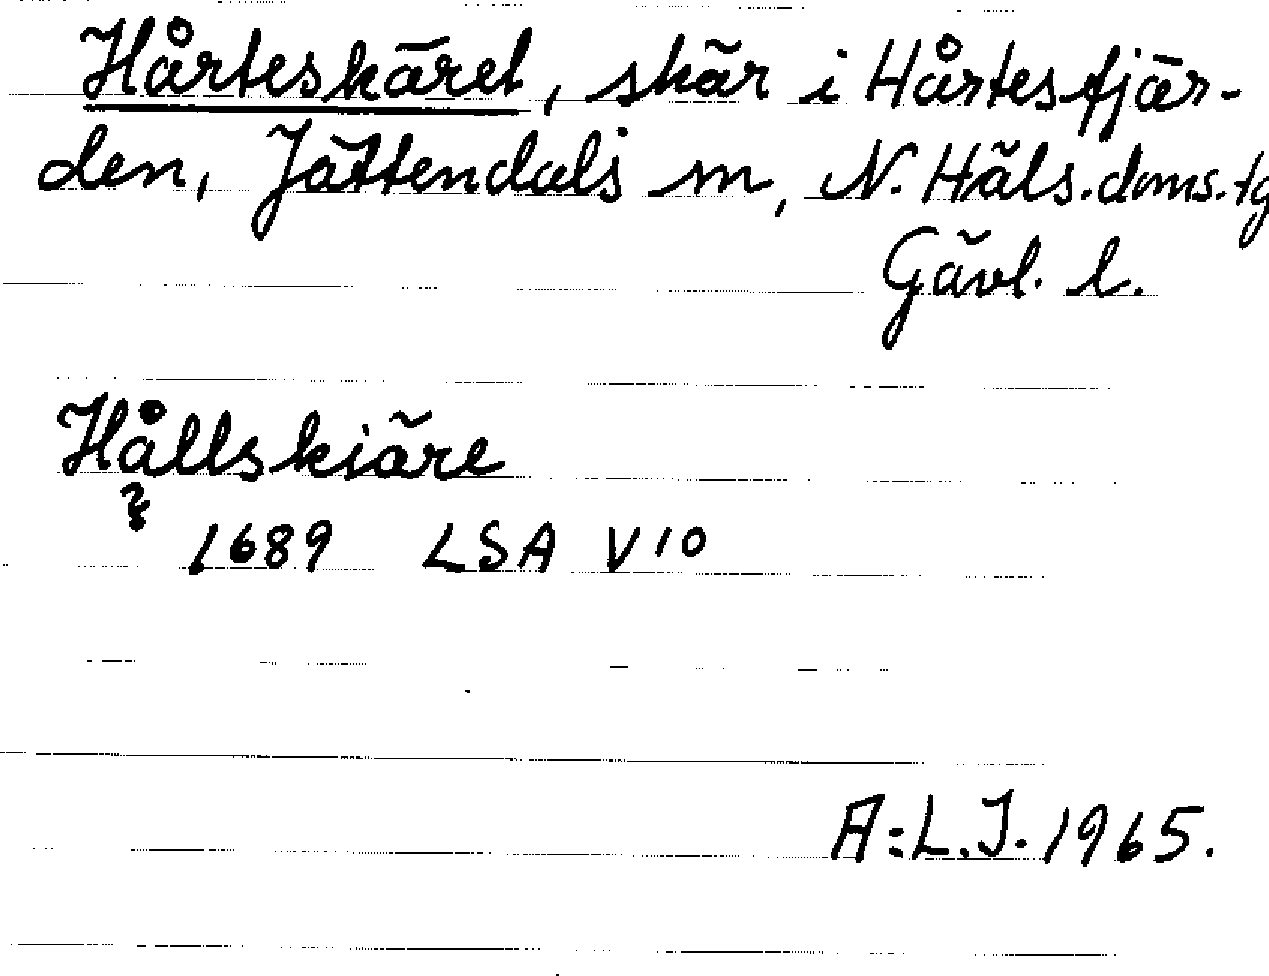 Hårteskäret, skär i Hårtesfjär-
den, Jättendals sn, N. Häls. doms. tg
Gävl. l.
Hållskiäre
?
1689 LSA V10
A:L.J. 1965.